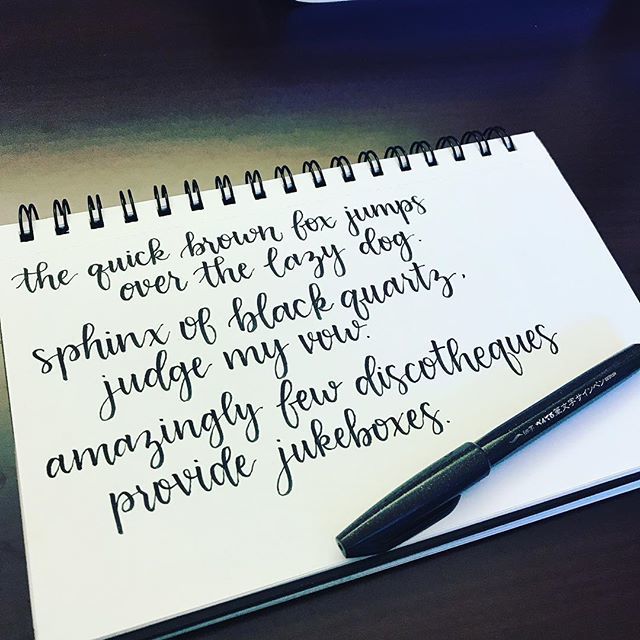 the quick brown fox jumps
over the lazy dog.
sphinx of black quartz,
judge my vow.
amazingly few discotheques
provide jukeboxes.
筆文字サインペン